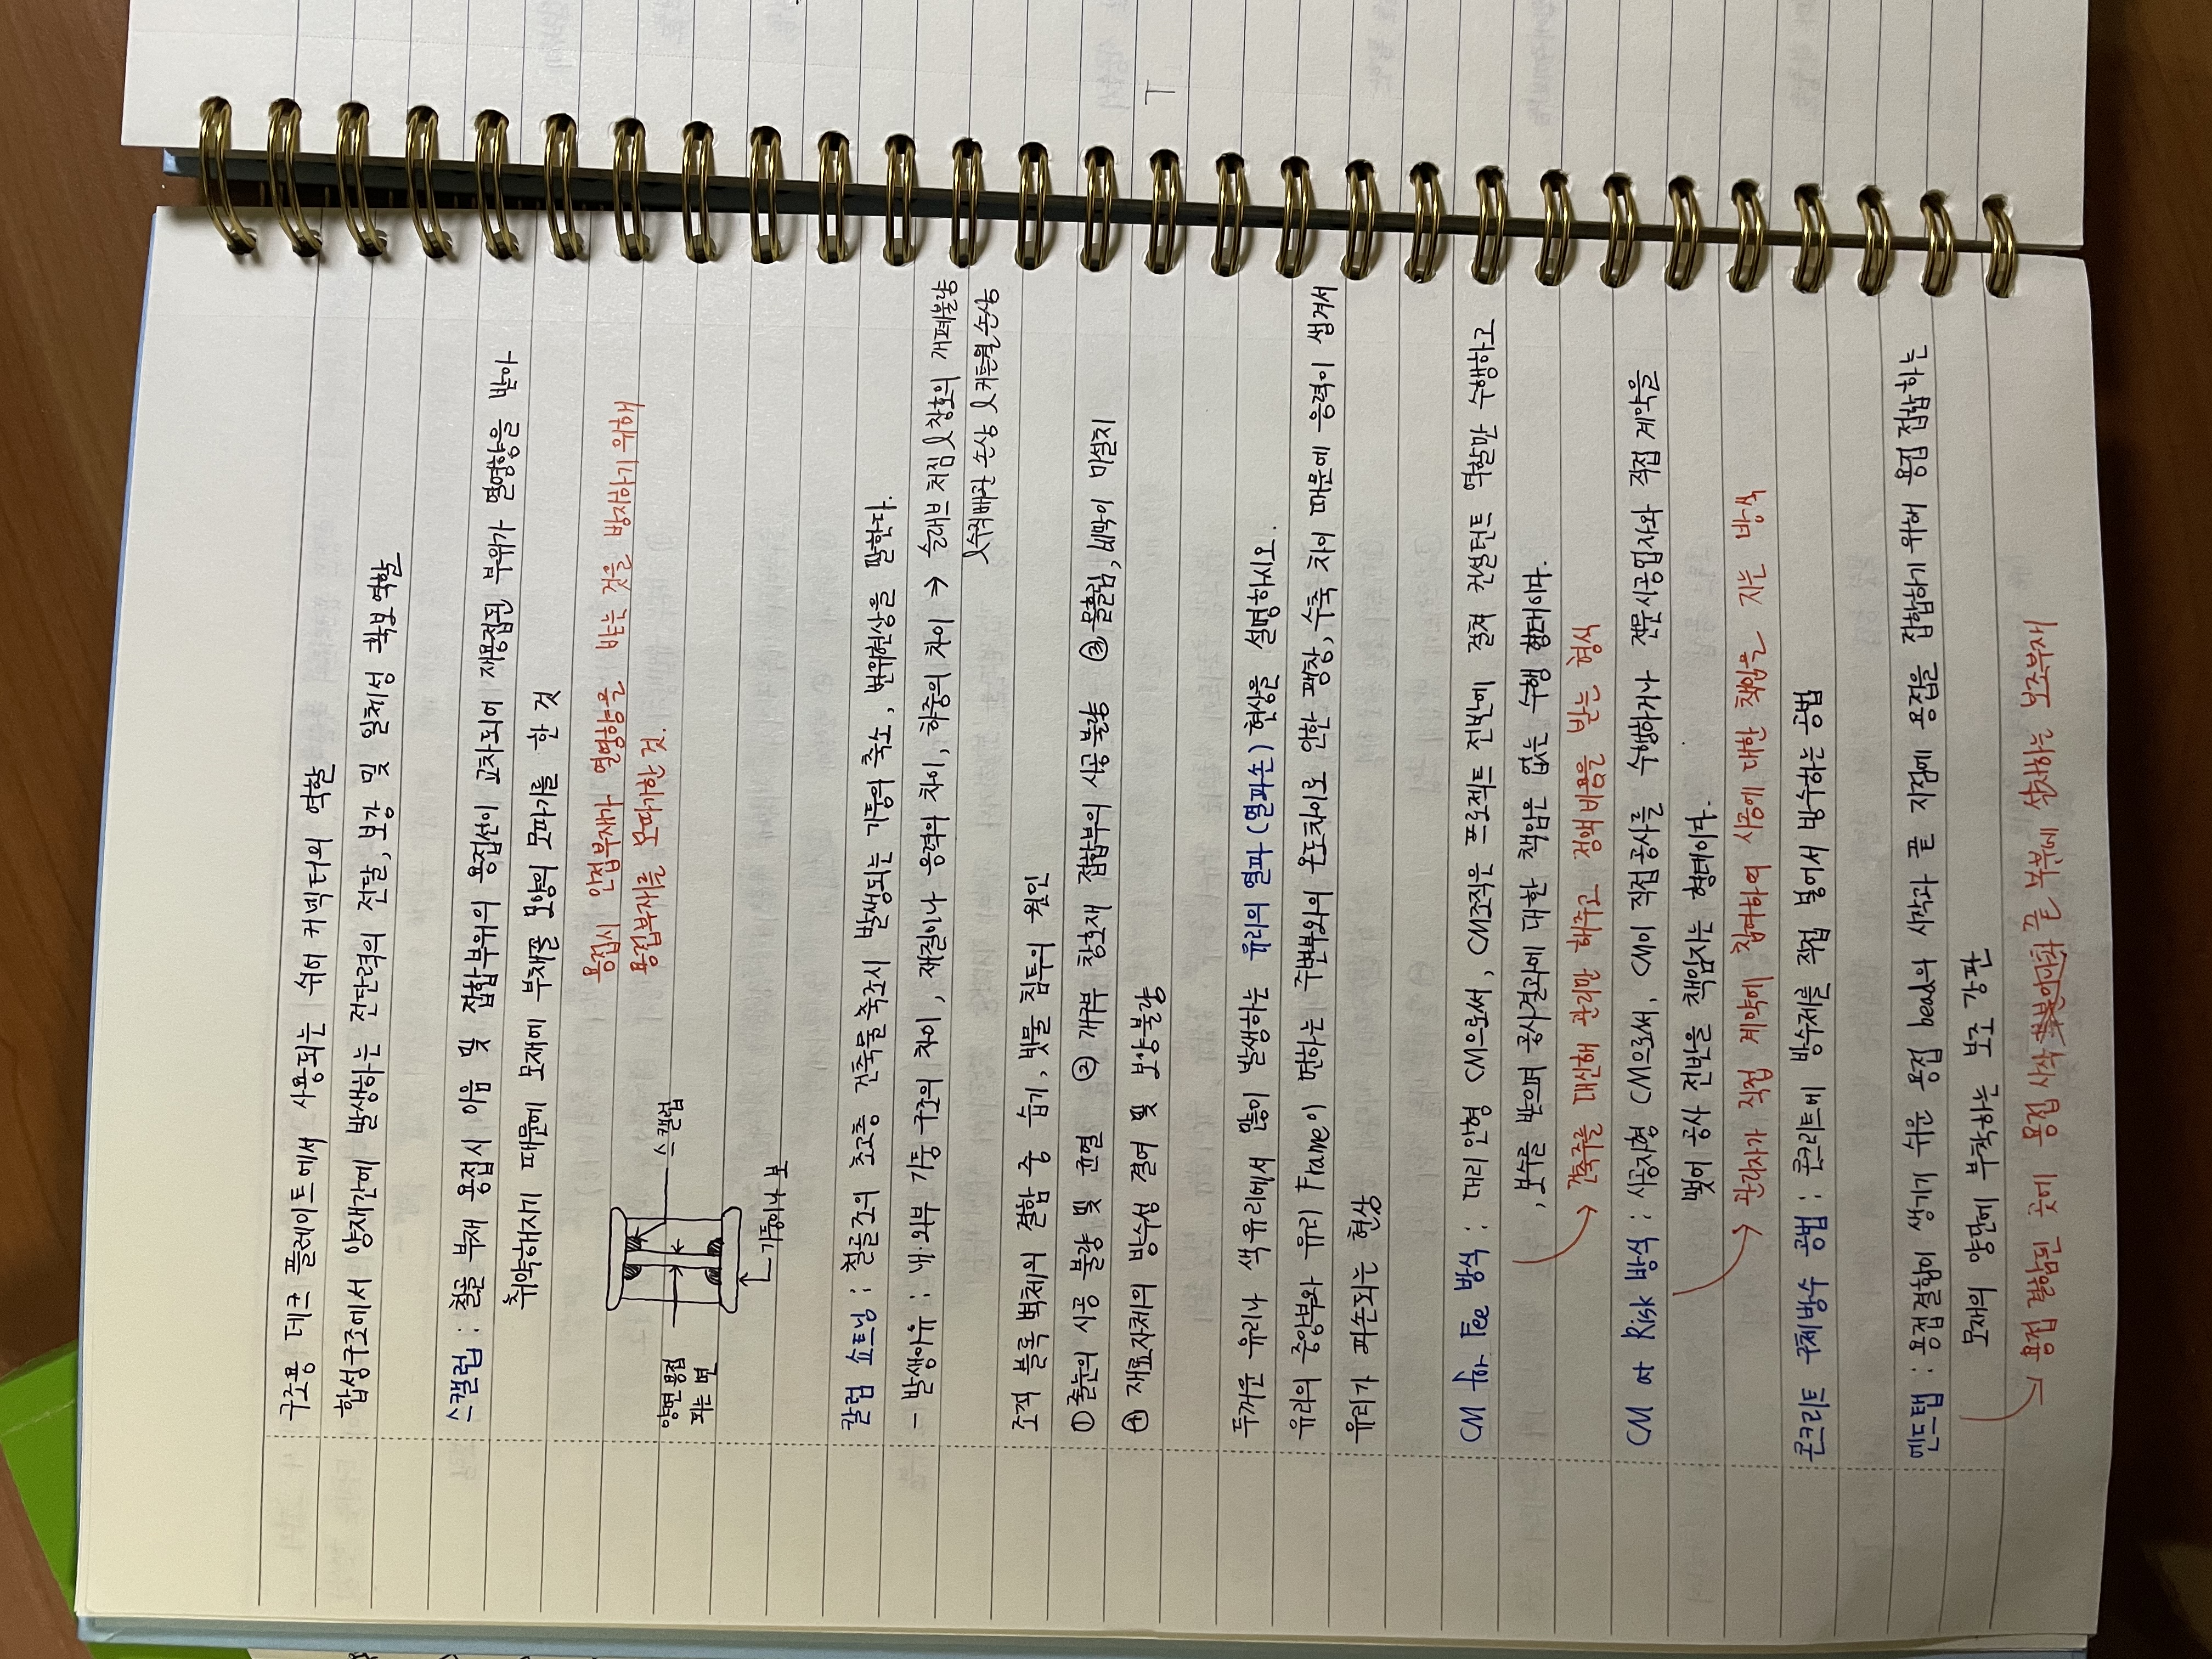 구조용 데크 플레이트에서 사용되는 쉬어 커넥터의 역할
합성구조에서 양재간에 발생하는 전단력의 전달, 보강 및 일체성 확보 역할
스캘럽 : 철골 부재 용접시 이음 및 접합부위의 용접선이 교차되어 재용접된 부위가 열영향을 받아
취약해지기 때문에 모재에 부채꼴 모양의 모따기를 한 것
용접시 인접부재가 열영향을 받는 것을 방지하기 위해
용접부재를 모따기한 것.
스캘럽
양면 용접
되는 면
기둥이나 보
칼럼 쇼트닝 : 철골조의 초고층 건축물 축조시 발생되는 기둥의 축소, 변위현상을 말한다.
- 발생이유 : 내·외부 기둥 구조의 차이, 재질이나 응력의 차이, 하중의 차이 → 슬래브 처짐 창호의 개폐불량
수직배관 손상 커튼월 손상
조적 블록 벽체의 결함 중 습기, 빗물 침투의 원인
① 줄눈의 시공 불량 및 균열 ② 개구부 창호재 접합부의 시공 불량 ③ 물흘림, 비막이 미설치
④ 재료자체의 방수성 결여 및 보양불량
두꺼운 유리나 색유리에서 많이 발생하는 유리의 열파(열파손) 현상을 설명하시오.
유리의 중앙부와 유리 Frame이 면하는 주변부와의 온도차이로 인한 팽창, 수축 차이 때문에 응력이 생겨서
유리가 파손되는 현상
CM for Fee 방식 : 대리인형 CM으로써, CM조직은 프로젝트 전반에 걸쳐 컨설턴트 역할만 수행하고
, 보수를 받으며 공사결과에 대한 책임은 없는 수행 형태이다.
→ 건축주를 대신해 관리만 해주고 정액비용을 받는 형식
CM at Risk 방식 : 시공자형 CM으로써, CM이 직접공사를 수행하거나 전문시공업자와 직접 계약을
맺어 공사 전반을 책임지는 형태이다.
→ 관리자가 직접 계약에 참여하여 시공에 대한 책임을 지는 방식
콘크리트 구체방수 공법 : 콘크리트에 방수제를 직접 넣어서 방수하는 공법
엔드탭 : 용접결함이 생기기 쉬운 용접 bead의 시작과 끝 지점에 용접을 접합하기 위해 용접 접합하는
모재의 양단에 부착하는 보조 강판
→ 용접 결함된 곳에 용접 시작 끝 부분에 설치하는 보조부재